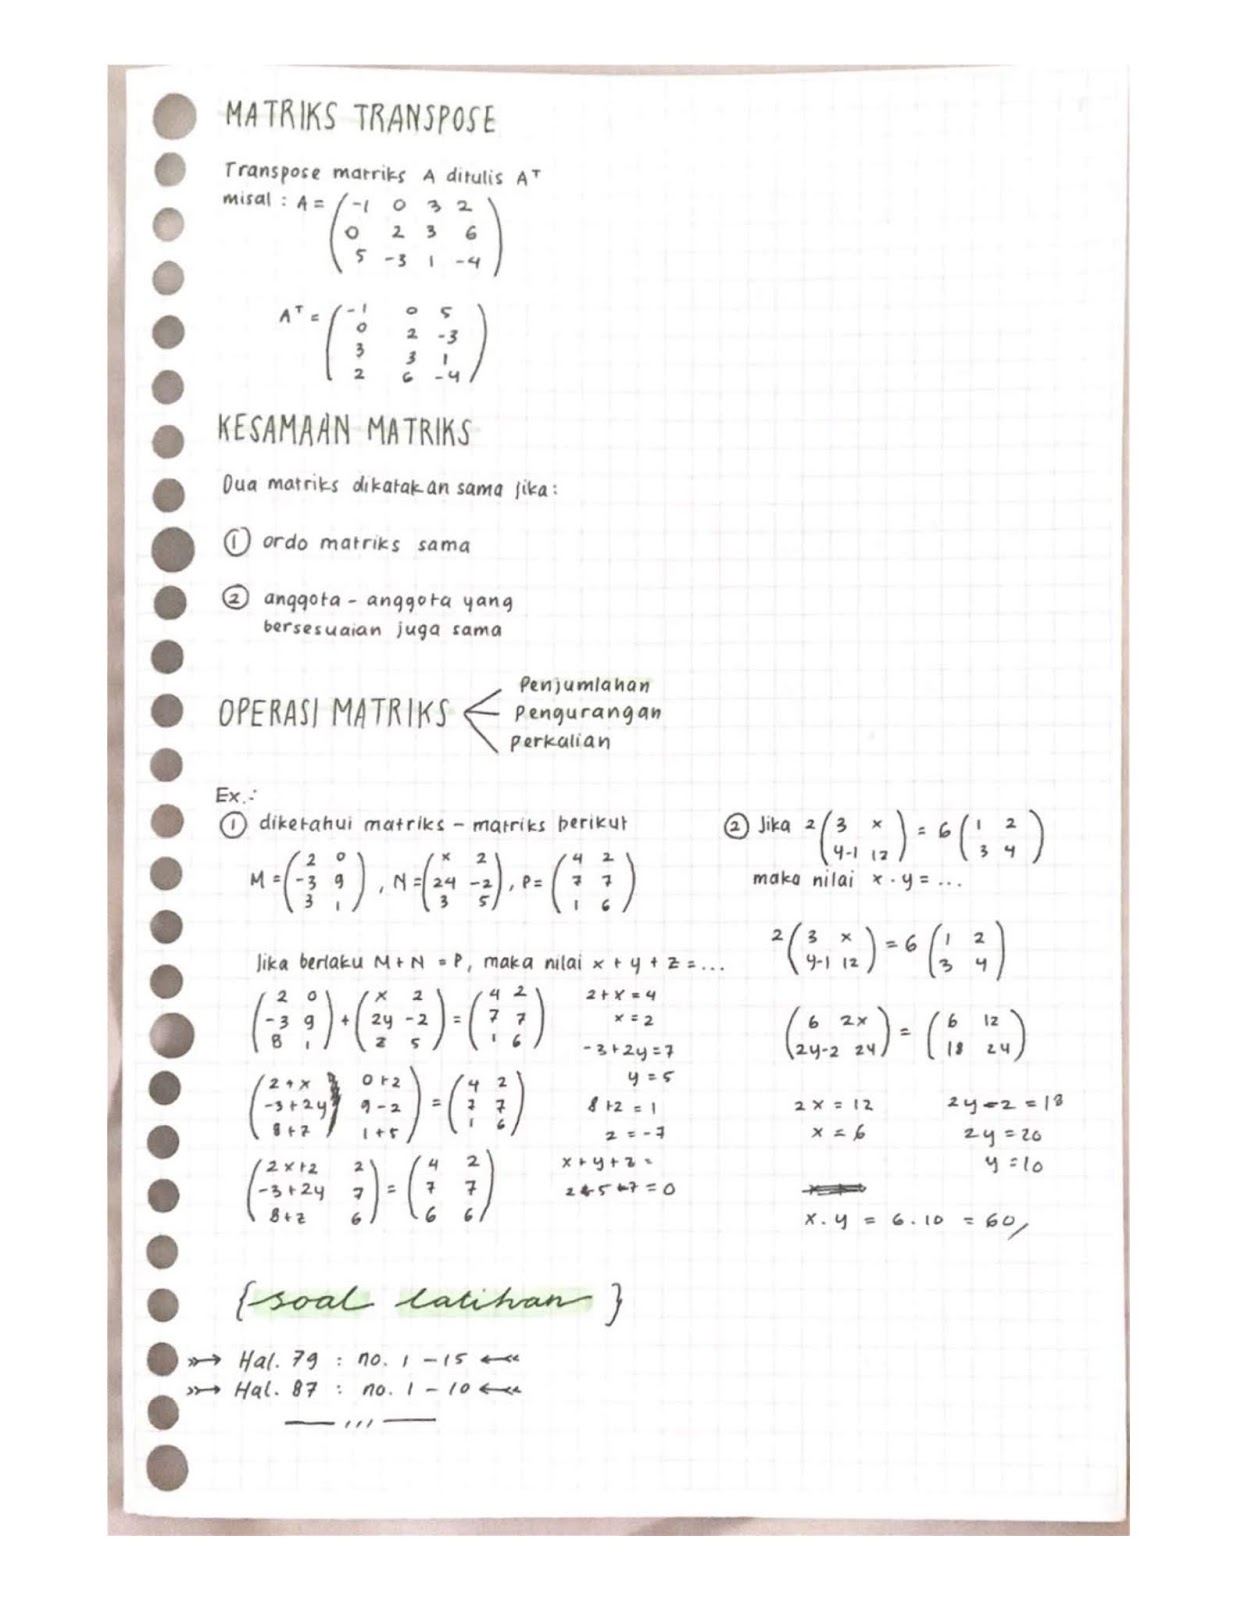 MATRIKS TRANSPOSE
Transpose matriks A ditulis Aᵀ
misal : A = ( -1 0 3 2
0 2 3 6
5 -3 1 -4 )
Aᵀ = ( -1 0 5
0 2 -3
3 3 1
2 6 -4 )
KESAMAAN MATRIKS
Dua matriks dikatakan sama jika :
① ordo matriks sama
② anggota - anggota yang
bersesuaian juga sama
OPERASI MATRIKS
Penjumlahan
Pengurangan
perkalian
Ex.:
① diketahui matriks - matriks berikut
M = ( 2 0 ) , N = ( x 2 ) , P = ( 4 2 )
( -3 9 ) ( 24 -2 ) ( 7 7 )
( 3 1 ) ( 3 5 ) ( 1 6 )
Jika berlaku M + N = P, maka nilai x + y + z = ...
( 2 0 ) + ( x 2 ) = ( 4 2 )
( -3 9 ) ( 2y -2 ) ( 7 7 )
( 8 1 ) ( z 5 ) ( 1 6 )
( 2+x 0+2 ) = ( 4 2 )
( -3+2y 9-2 ) ( 7 7 )
( 8+z 1+5 ) ( 1 6 )
( 2x+2 2 ) = ( 4 2 )
( -3+2y 7 ) ( 7 7 )
( 8+z 6 ) ( 6 6 )
2 + x = 4
x = 2
-3 + 2y = 7
y = 5
8 + z = 1
z = -7
x + y + z =
2 + 5 + -7 = 0
② Jika 2 ( 3 x ) = 6 ( 1 2 )
( y-1 12 ) ( 3 4 )
maka nilai x . y = ...
2 ( 3 x ) = 6 ( 1 2 )
( y-1 12 ) ( 3 4 )
( 6 2x ) = ( 6 12 )
( 2y-2 24 ) ( 18 24 )
2x = 12
x = 6
2y - 2 = 18
2y = 20
y = 10
x . y = 6 . 10 = 60
{ soal latihan }
Hal. 79 : no. 1 - 15
Hal. 87 : no. 1 - 10